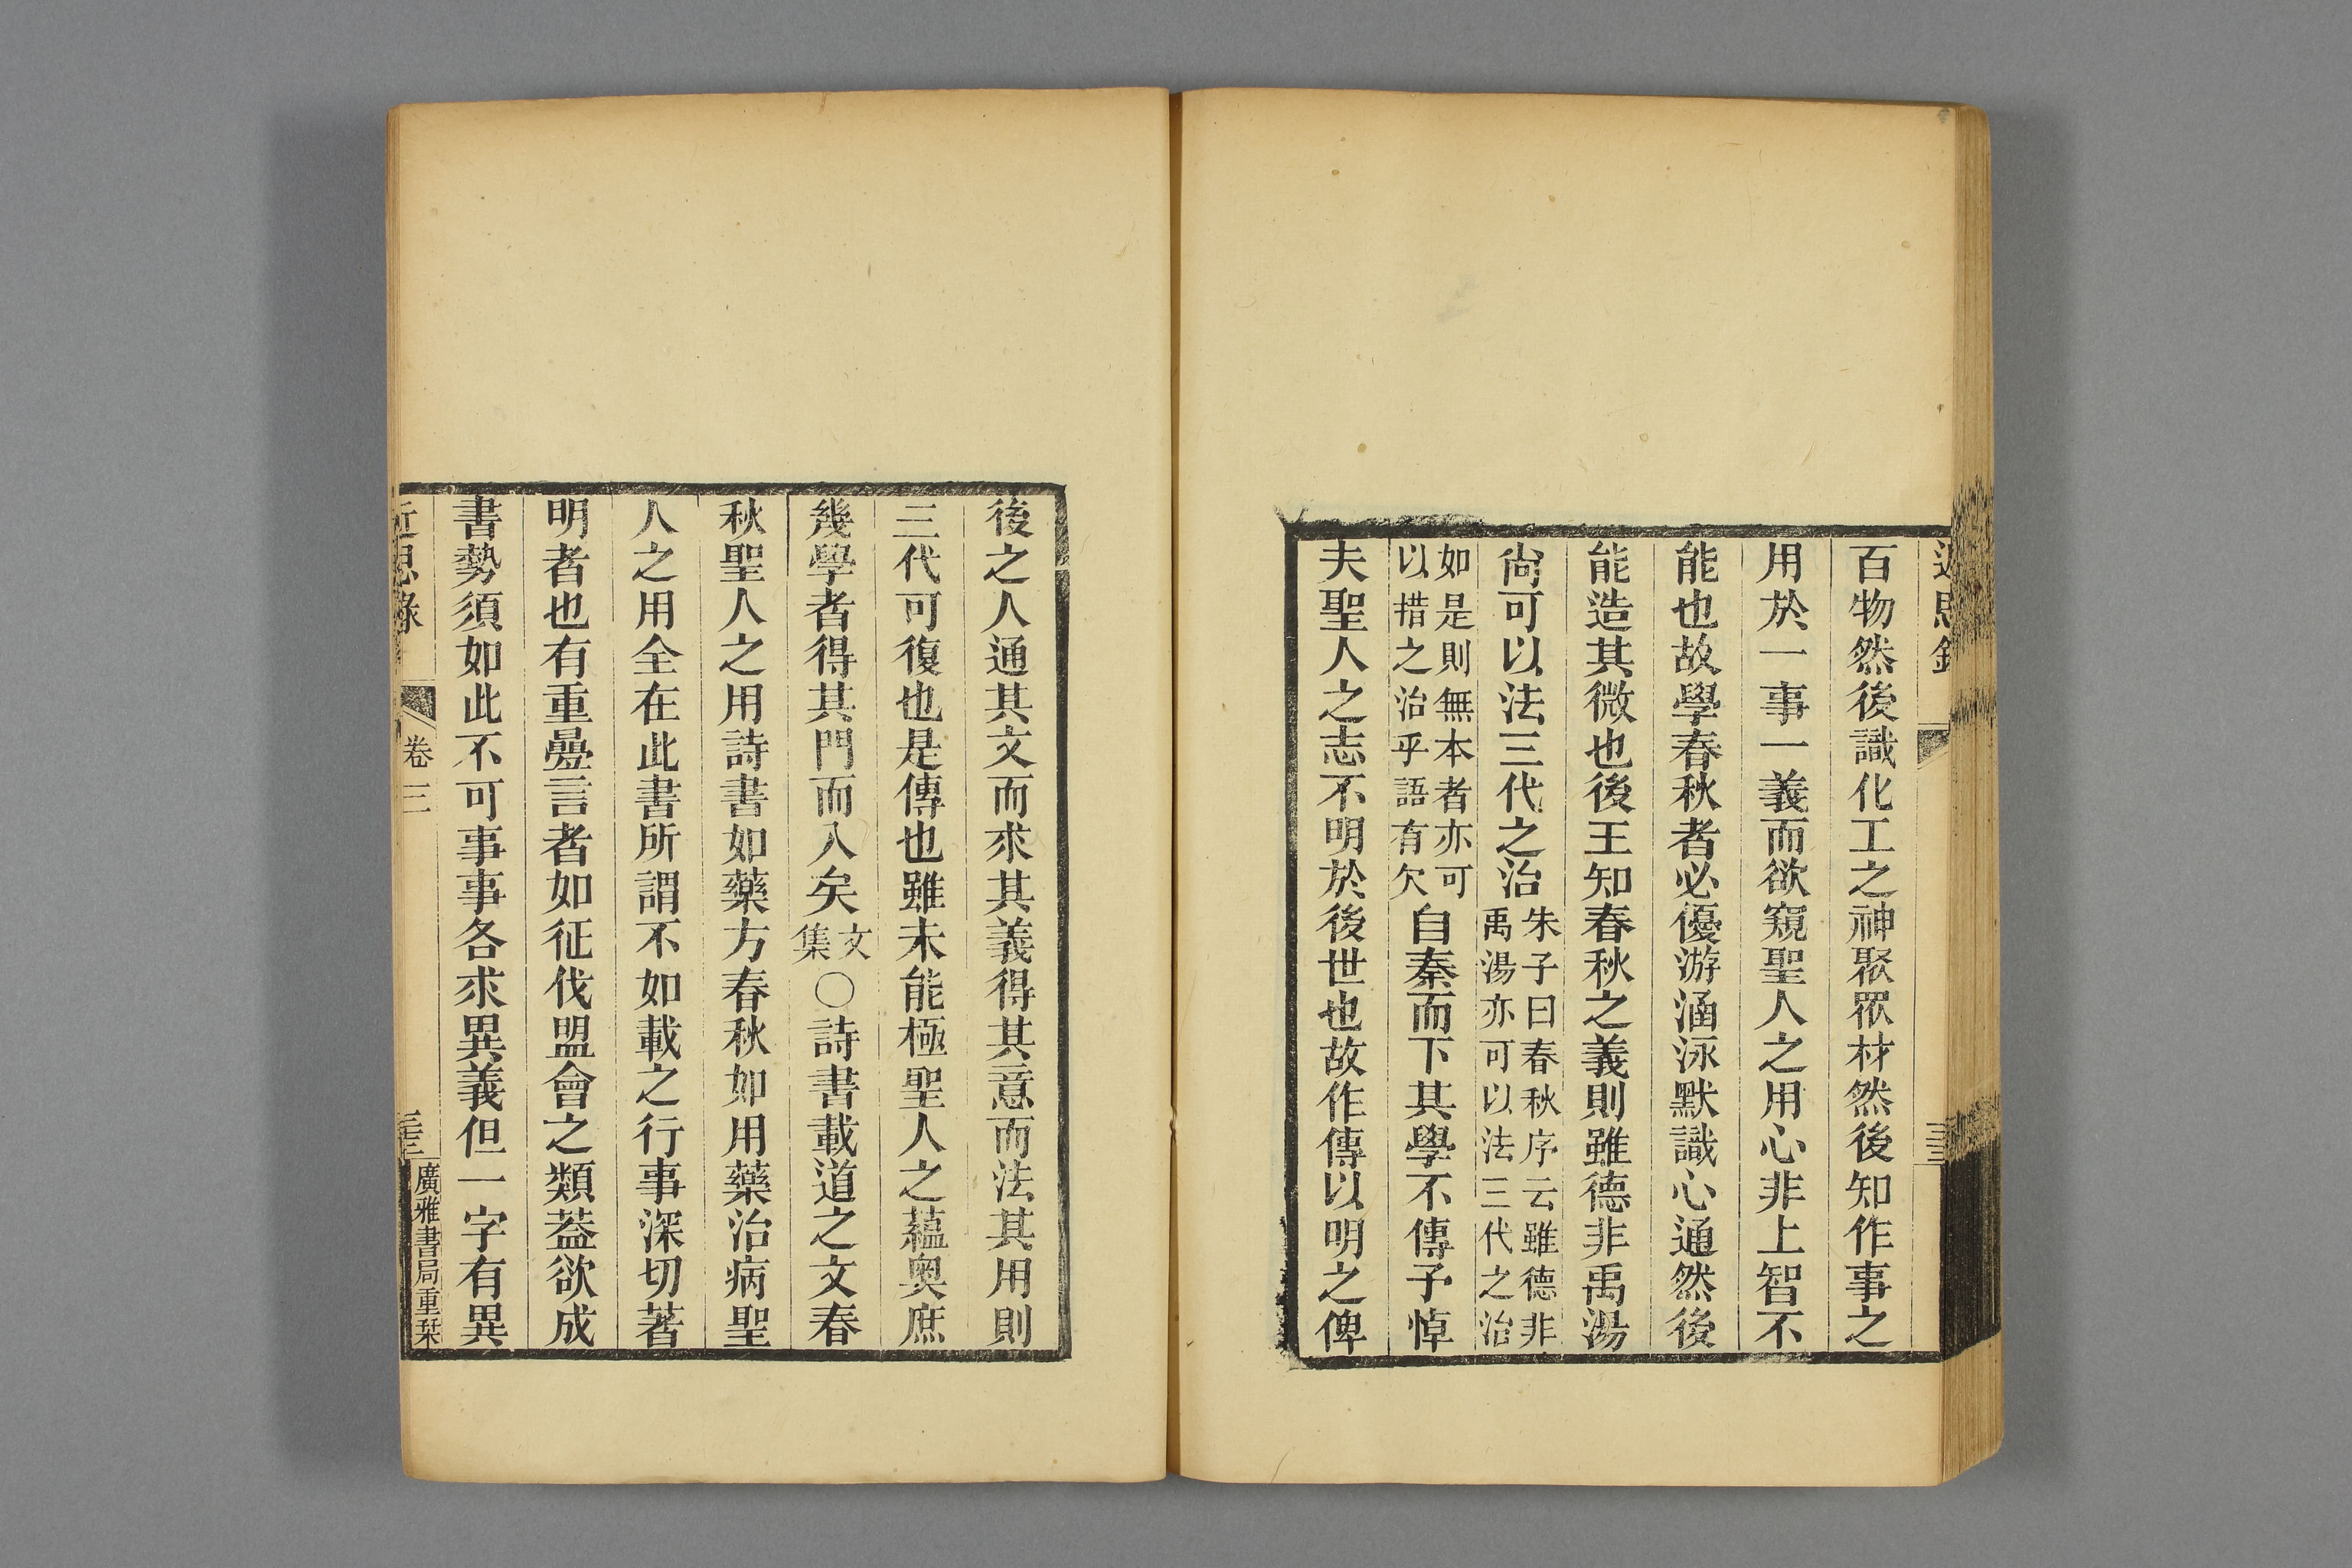 近思錄
百物然後識化工之神聚眾材然後知作事之
用於一事一義而欲窺聖人之用心非上智不
能也故學春秋者必優游涵泳默識心通然後
能造其微也後王知春秋之義則雖德非禹湯
尙可以法三代之治
朱子曰春秋序云雖德非
禹湯亦可以法三代之治
如是則無本者亦可
以措之治乎語有欠
自秦而下其學不傳予悼
夫聖人之志不明於後世也故作傳以明之俾
後之人通其文而求其義得其意而法其用則
三代可復也是傳也雖未能極聖人之蘊奧庶
幾學者得其門而入矣
文
集
○詩書載道之文春
秋聖人之用詩書如藥方春秋如用藥治病聖
人之用全在此書所謂不如載之行事深切著
明者也有重疊言者如征伐盟會之類葢欲成
書勢須如此不可事事各求異義但一字有異
近思錄 卷三 廣雅書局重栞